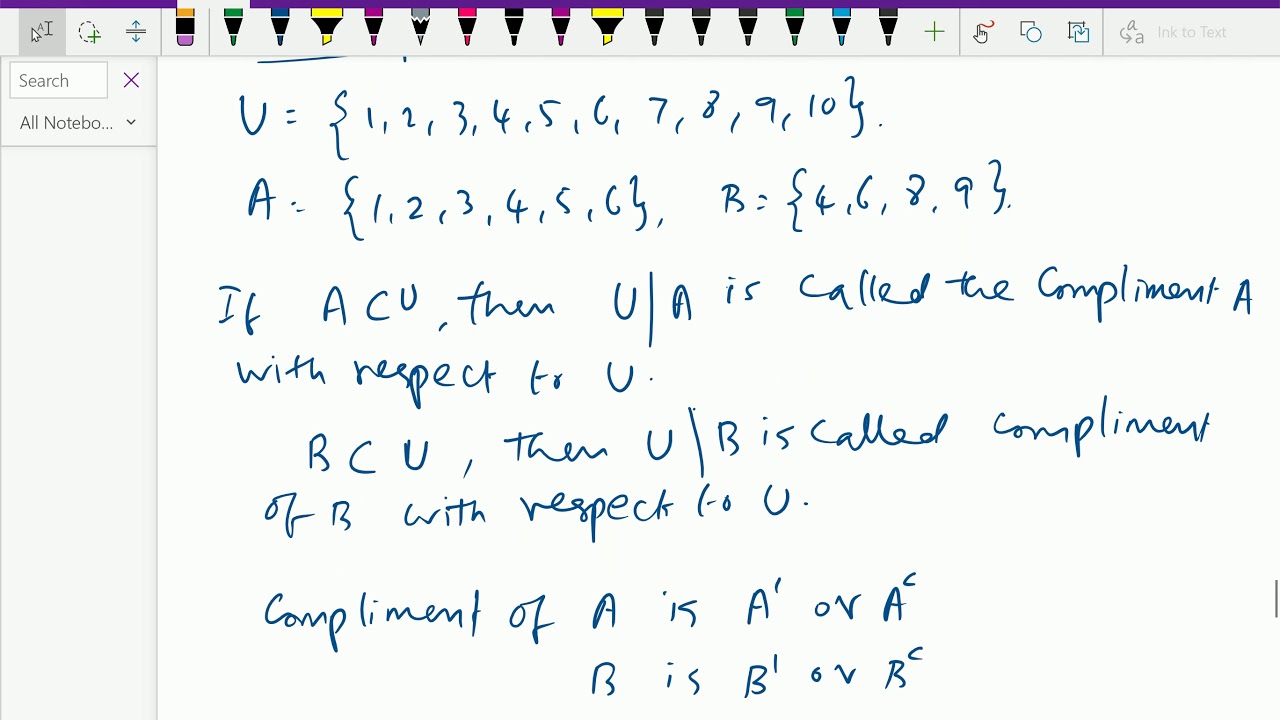 Ink to Text
Search
All Notebo...
U = {1, 2, 3, 4, 5, 6, 7, 8, 9, 10}.
A = {1, 2, 3, 4, 5, 6}, B = {4, 6, 8, 9}.
If A ⊂ U, then U | A is called the Compliment A
with respect to U.
B ⊂ U, then U \ B is called compliment
of B with respect to U.
Compliment of A is A' or Aᶜ
B is B' or Bᶜ